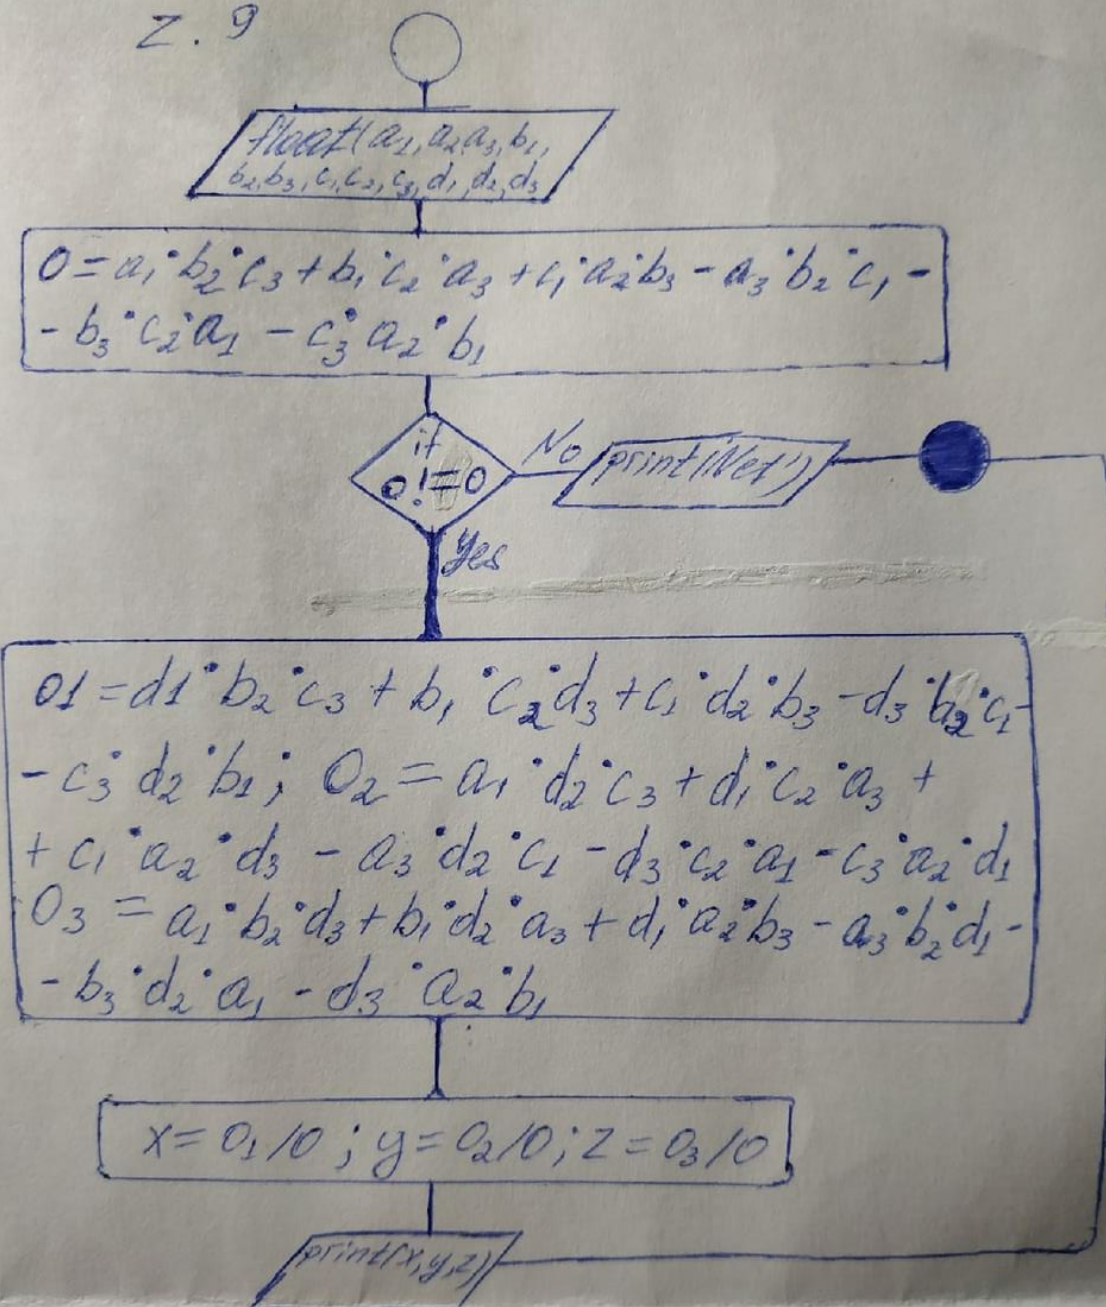 Z. 9
float(a₁, a₂ a₃, b₁,
b₂, b₃, c₁, c₂, c₃, d₁, d₂, d₃
O = a₁ · b₂ · c₃ + b₁ · c₂ · a₃ + c₁ · a₂ · b₃ - a₃ · b₂ · c₁ -
- b₃ · c₂ · a₁ - c₃ · a₂ · b₁
if
O != 0
No
print('Net')
Yes
O1 = d1 · b₂ · c₃ + b₁ · c₂ · d₃ + c₁ · d₂ · b₃ - d₃ · b₂ · c₁ -
- c₃ · d₂ · b₁ ; O₂ = a₁ · d₂ · c₃ + d₁ · c₂ · a₃ +
+ c₁ · a₂ · d₃ - a₃ · d₂ · c₁ - d₃ · c₂ · a₁ - c₃ · a₂ · d₁
O₃ = a₁ · b₂ · d₃ + b₁ · d₂ · a₃ + d₁ · a₂ · b₃ - a₃ · b₂ · d₁ -
- b₃ · d₂ · a₁ - d₃ · a₂ · b₁
x = O₁/O ; y = O₂/O ; z = O₃/O
print(x, y, z)